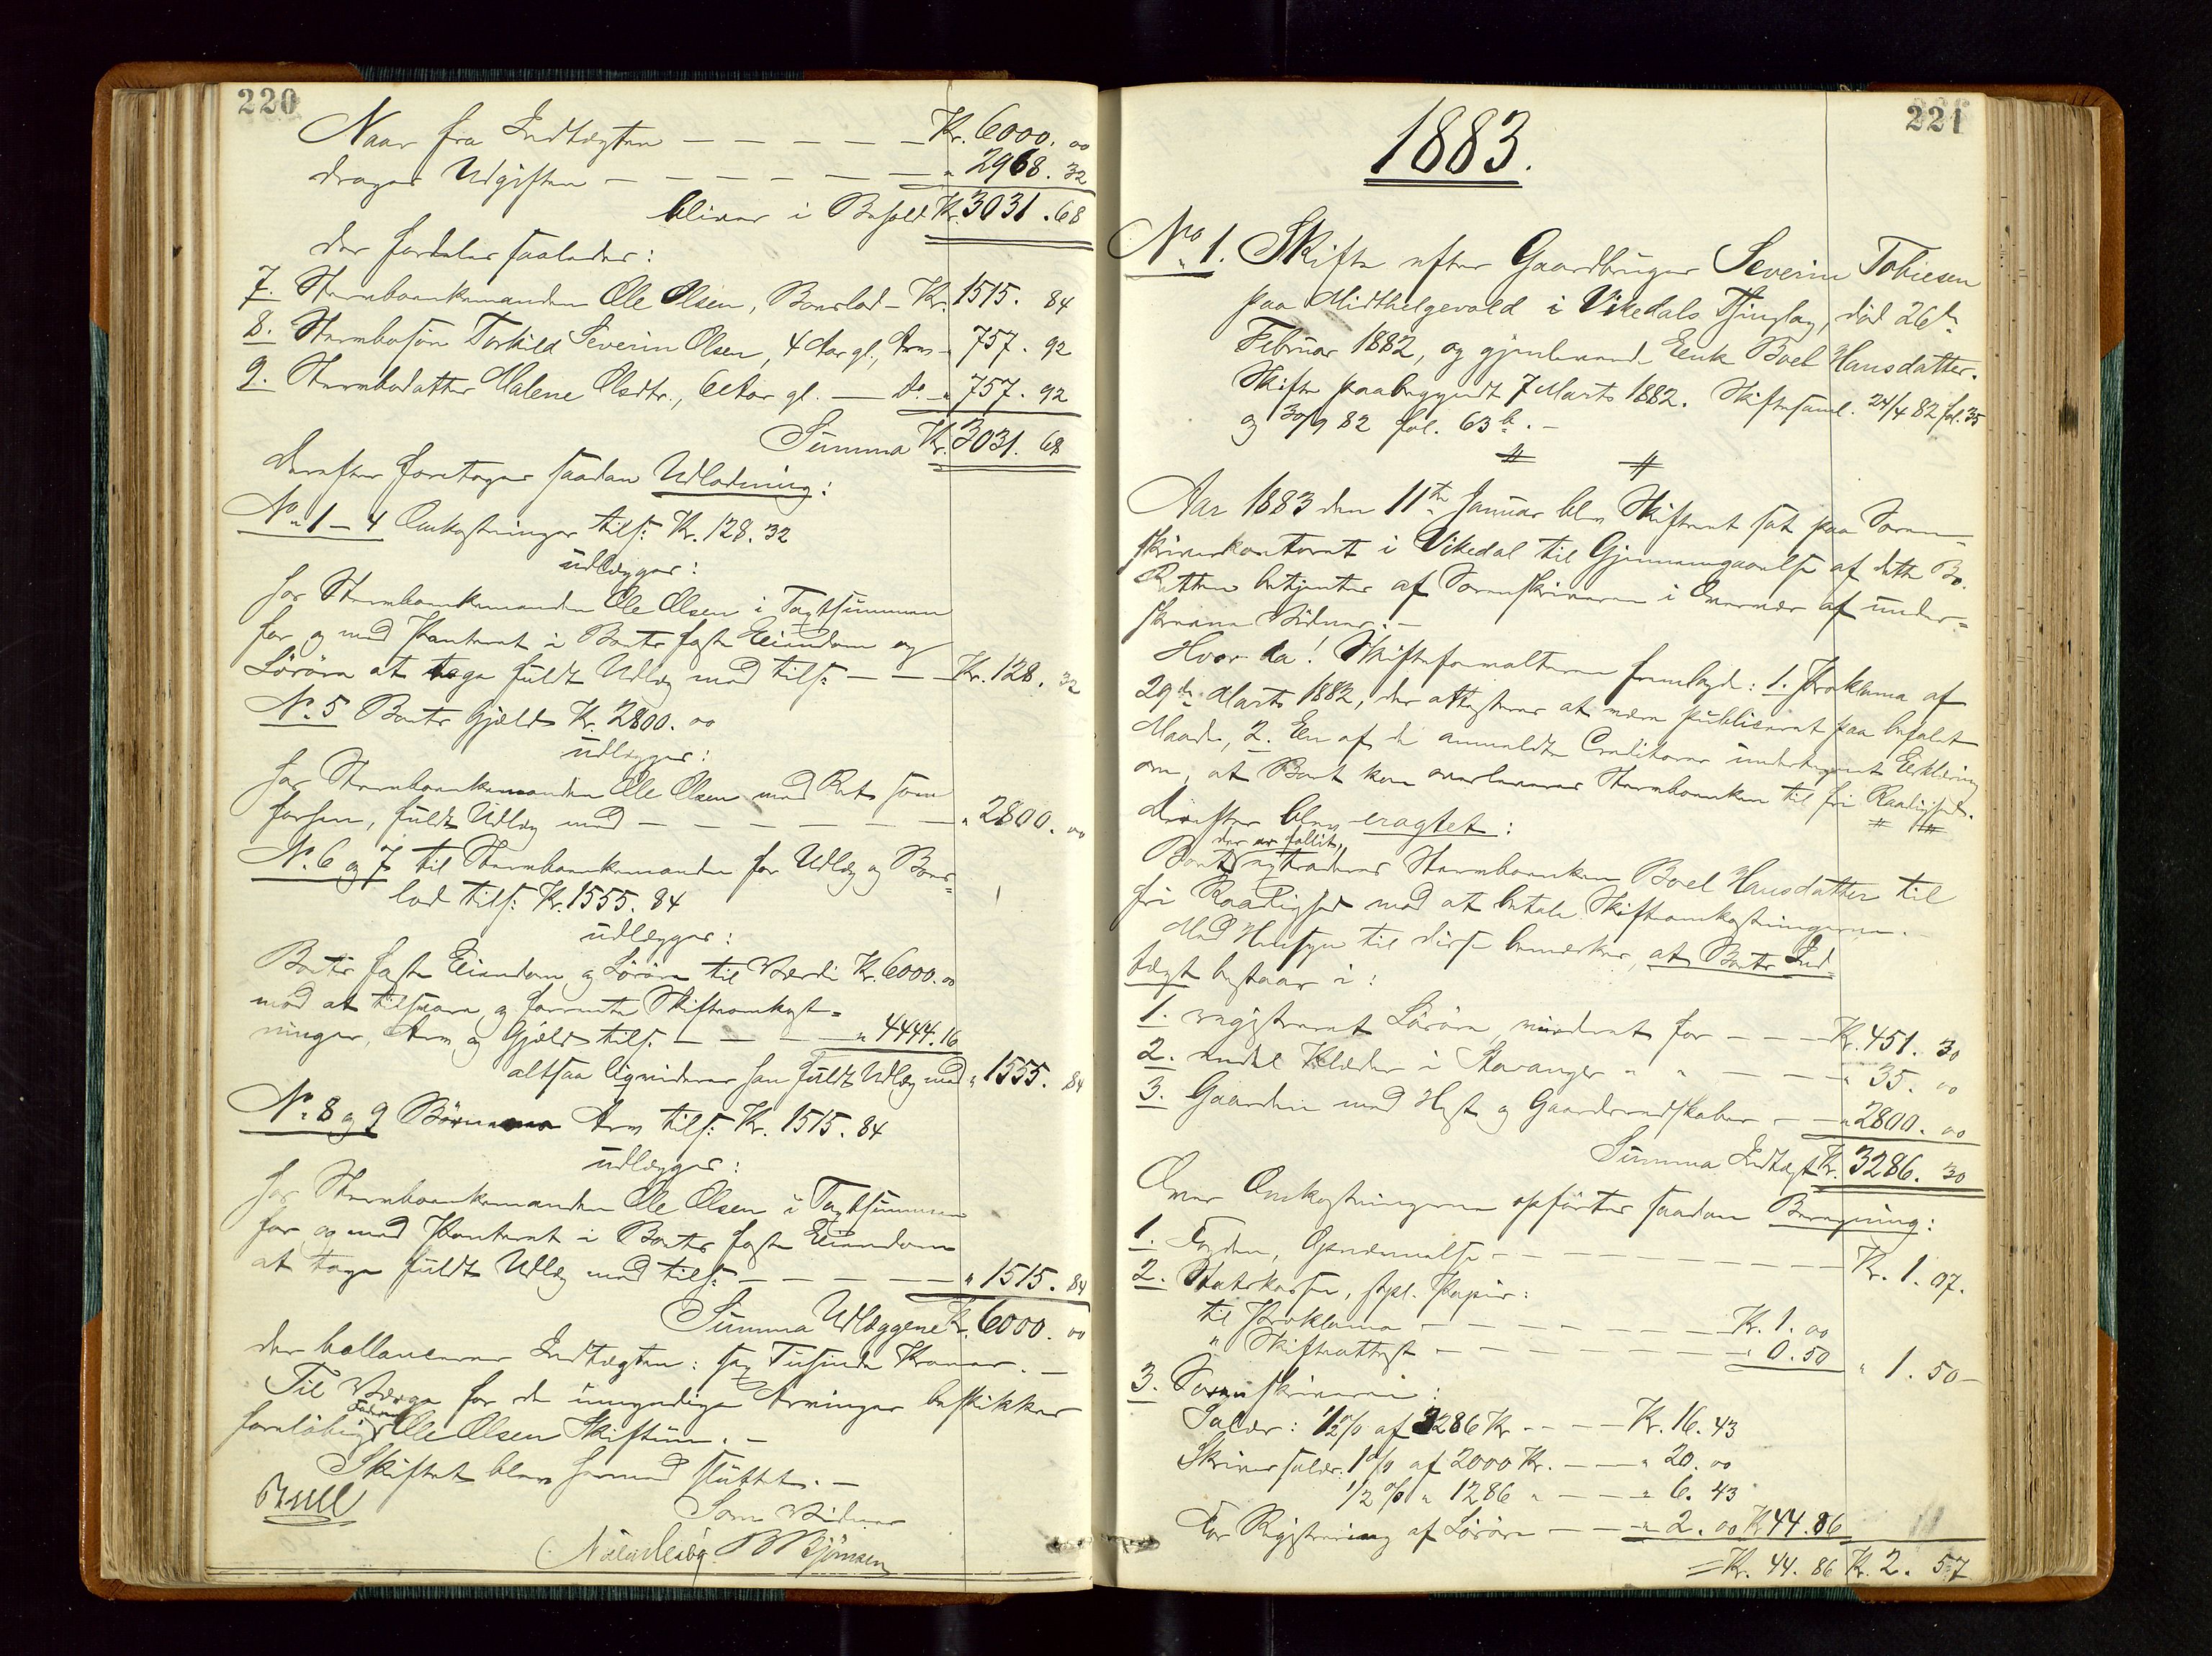 220
Naar fra Indtægten — — — — — Kr. 6000. 00
drages Udgiften — — — — — — " 2968. 32
bliver i Behold Kr. 3031. 68
der fordeles saaledes:
7. Sterbboenkemanden Ole Olsen, Boeslod - Kr. 1515. 84
8. Sterbbosøn Torkild Severin Olsen, 4 Aar gl., Arv - 757. 92
9. Sterbbodatter Malene Olsdtr., 6 Aar gl. — Do. - " 757. 92
Summa Kr. 3031. 68
Derefter foretoges saadan Udlodning:
No. 1 - 4 Omkostninger tils: Kr. 128. 32
udlægges:
hos Sterbboenkemanden Ole Olsen i Taxtsummen
for og med Panteret i Boets faste Eiendom og
Løsøre at tage fuldt Udlæg med tils: — — — Kr. 128. 32
No. 5 Boets Gjæld Kr. 2800. 00
udlægges:
hos Sterbboenkemanden Ole Olsen med Ret som
forhen, fuldt Udlæg med — — — — — — " 2800. 00
No. 6 og 7 til Sterbboenkemanden for Udlæg og Boes-
lod tils: Kr. 1555. 84
udlægges:
Boets faste Eiendom og Løsøre til Værdi Kr. 6000. 00
mod at tilsvare og forrente Skifteomkost-
ninger, Arv og Gjæld tils: — — — " 4444. 16
altsaa liquideres han fuldt Udlæg med " 1555. 84
No. 8 og 9 Børnenes Arv tils: Kr. 1515. 84
udlægges:
hos Sterbboenkemanden Ole Olsen i Taxtsummen
for og med Panteret i Boets faste Eiendom
at tage fuldt Udlæg med tils: — — — — " 1515. 84
Summa Udlæggene Kr. 6000. 00
der ballancerer Indtægten: sex Tusinde Kroner. —
Til Værge for de umyndige Arvinger beskikkes
foreløbigt Faderen Ole Olsen Skiftun. —
Skiftet blev hermed sluttet. —
Bull
Som Vidner
B Bjønsen
221
1883.
No. 1. Skifte efter Gaardbruger Severin Tobiesen
paa Midthelgevold i Vikedals Thinglag, død 26de
Februar 1882, og gjenlevende Enke Boel Hansdatter.
Skifte paabegyndt 7 Marts 1882. Skiftesaml. 24/4 82 fol. 35
og 30/9 82 fol. 63 b. —
Aar 1883 den 11te Januar blev Skifteret sat paa Soren-
skriverkontoret i Vikedal til Gjennemgaaelse af dette Bo.
Retten betjentes af Sorenskriveren i Overvær af under-
skrevne Vidner. —
Hvor da! Skifteforvalteren fremlagde: 1. Proklama af
29de Marts 1882, der attesteres at være publiceret paa befalet
Maade, 2. En af de anmeldte Creditorer undertegnet Erklæring
om, at Boet kan overleveres Sterbboenken til fri Raadighed.
Derefter blev eragtet:
Boet, der er fallit, extraderes Sterbboenken Boel Hansdatter til
fri Raadighed mod at betale Skifteomkostningerne.
Med Hensyn til disse bemærkes, at Boets Ind-
tægt bestaar i:
1. registreret Løsøre, vurderet for — — — Kr. 451. 30
2. endel Klæder i Stavanger " " — — — " 35. 00
3. Gaarden med Hest og Gaardsredskaber — — " 2800. 00
Summa Indtægt Kr. 3286. 30
Over Omkostningerne opførtes saadan Beregning:
1. Fogden, Opnævnelse — — — — — — Kr. 1. 07.
2. Statskassen, stpl. Papir:
til Proklama — — — — — — Kr. 1. 00
" Skifteattest — — — — — — " 0. 50 " 1. 50 —
3. Sorenskriveren:
Salær: 1/2 % af 3286 Kr — — — Kr. 16. 43
Skriversalær: 1 % af 2000 Kr. — — " 20. 00
1/2 % " 1286 " — — — " 6. 43
For Registrering af Løsøre — — — " 2. 00 Kr 44. 86
= Kr. 44. 86 Kr. 2. 57